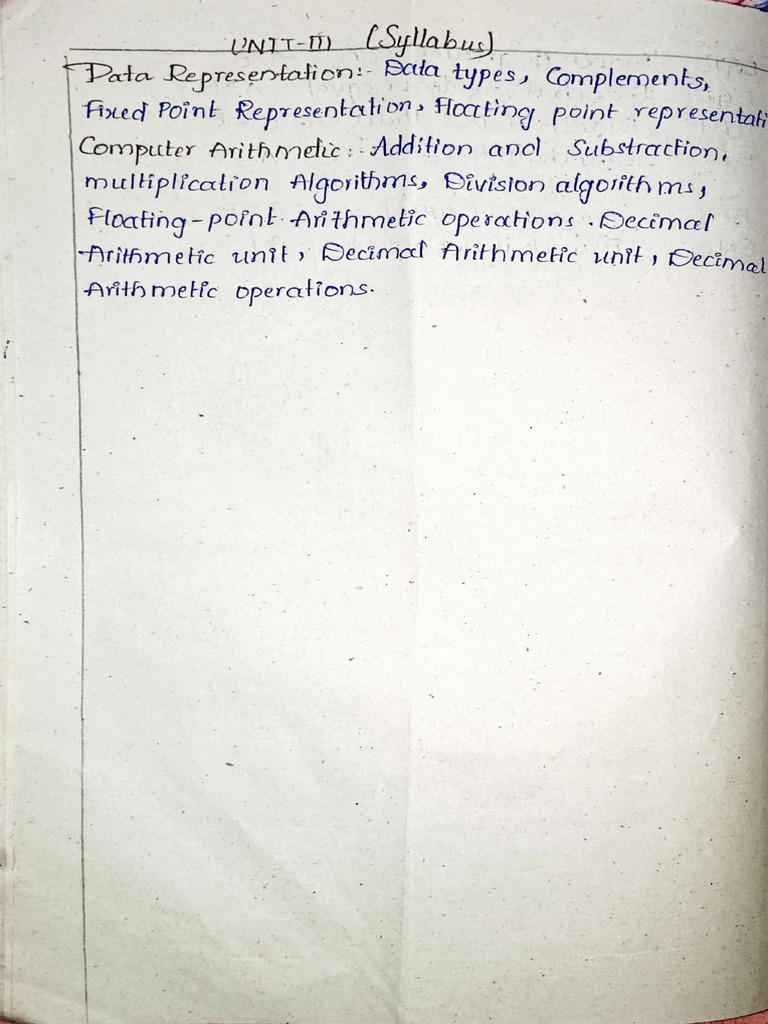 UNIT-III (Syllabus)
Data Representation:- Data types, Complements,
Fixed Point Representation, Floating point representati
Computer Arithmetic:- Addition and Substraction,
multiplication Algorithms, Division algorithms,
Floating-point Arithmetic operations. Decimal
Arithmetic unit, Decimal Arithmetic unit, Decimal
Arithmetic operations.